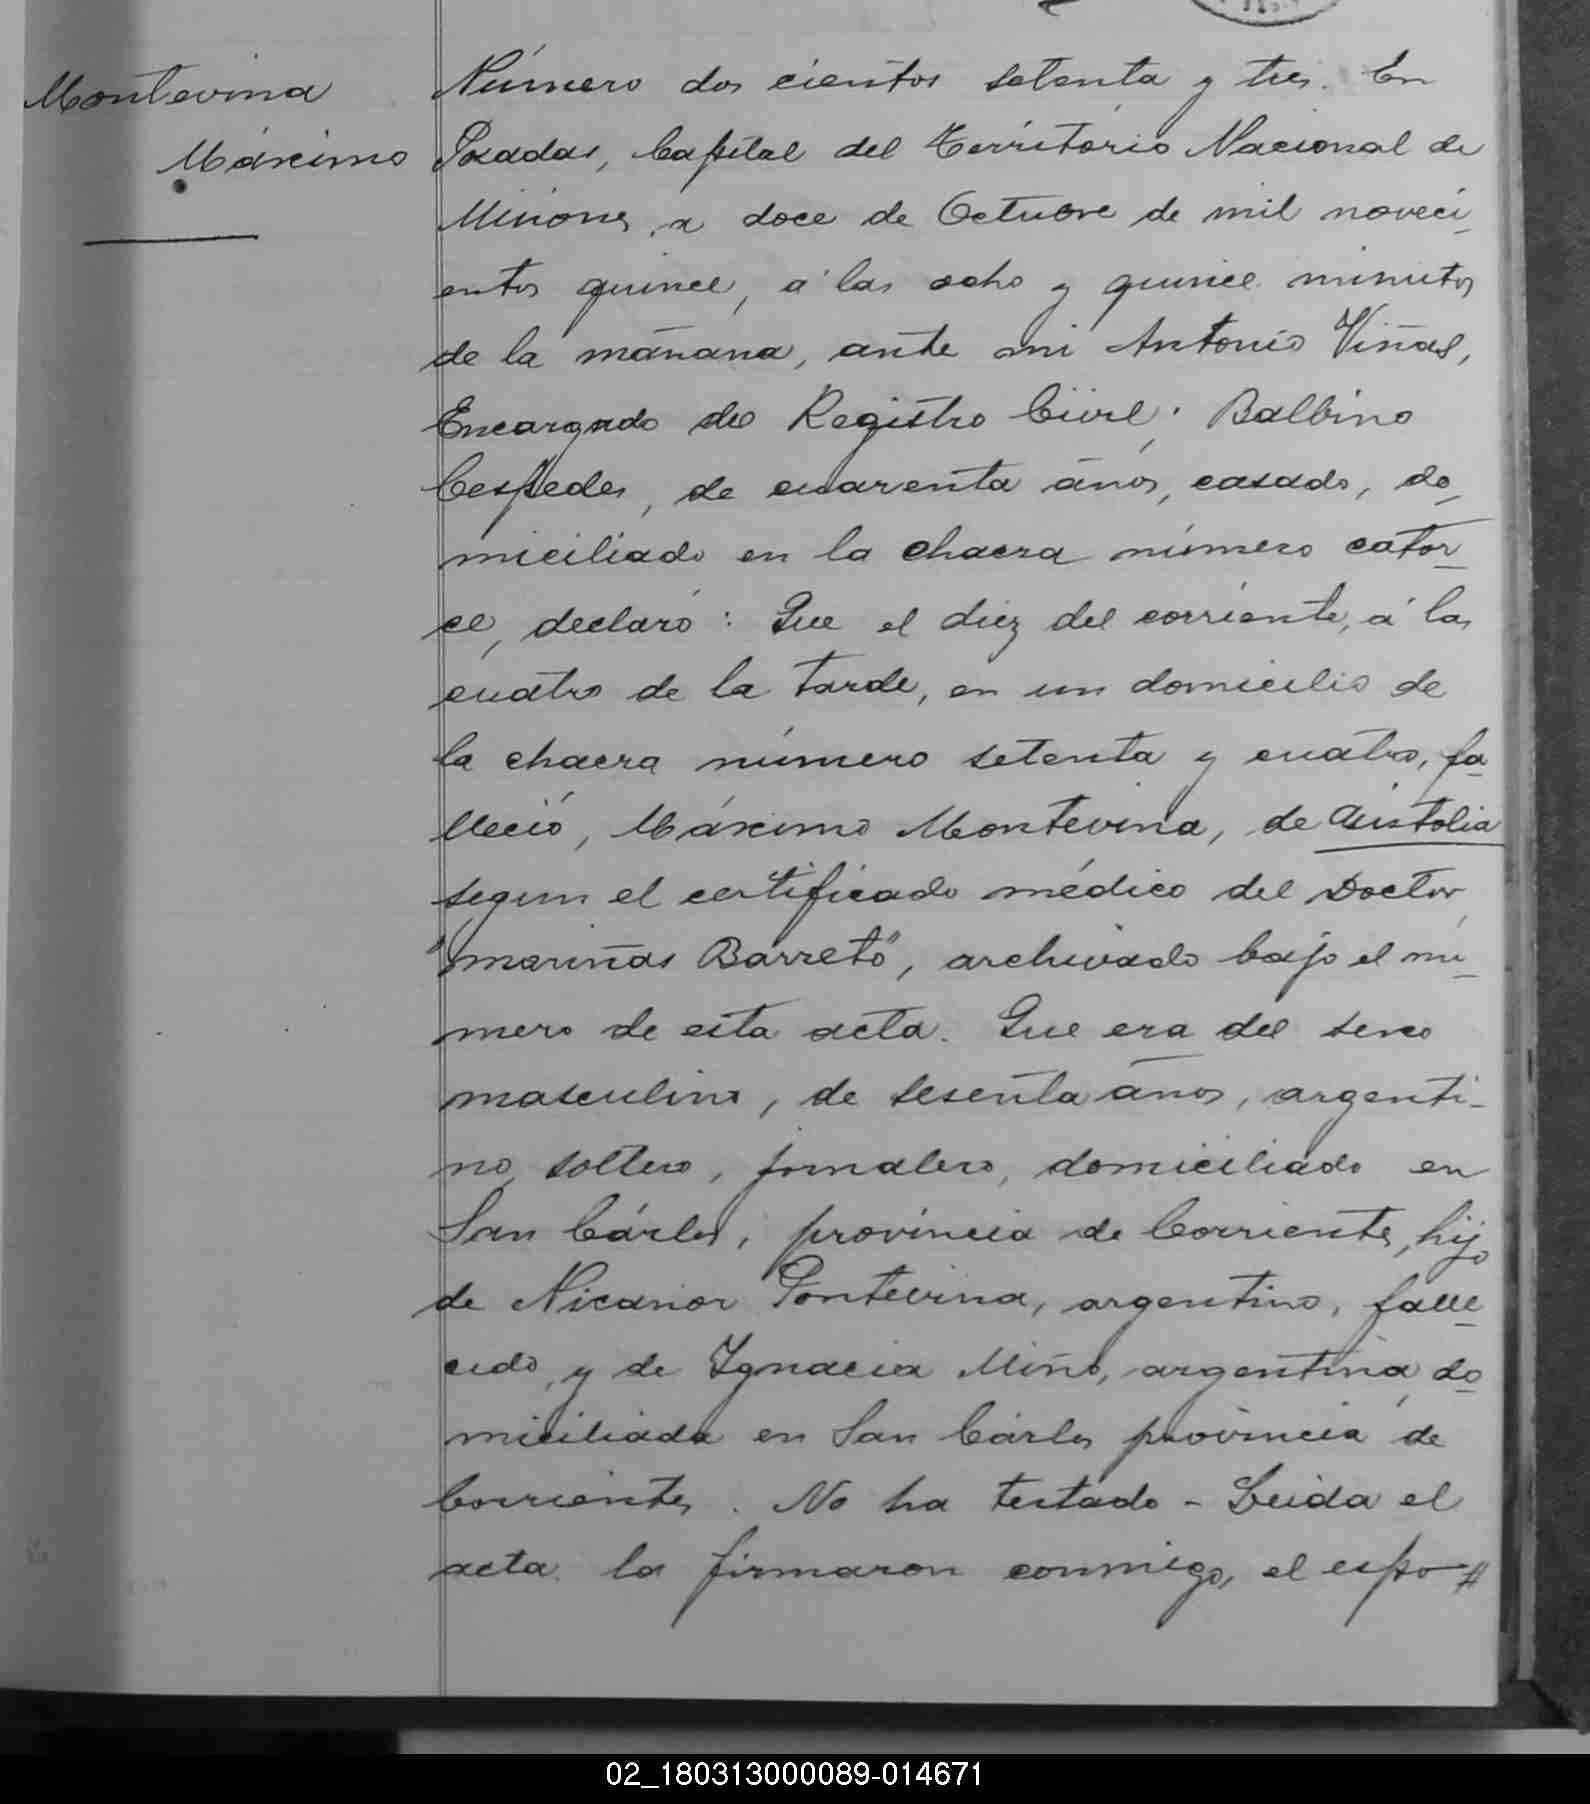 Montevina
Máximo
Número dos cientos setenta y tres. En
Posadas, Capital del Territorio Nacional de
Misiones, a doce de Octubre de mil noveci_
entos quince, á las ocho y quince minutos
de la mañana, ante mi Antonio Viñas,
Encargado del Registro Civil; Balbino
Cespedes, de cuarenta años, casado, do_
miciliado en la chacra número cator_
ce, declaró: Que el diez del corriente, á las
cuatro de la tarde, en un domicilio de
la chacra número setenta y cuatro, fa_
lleció, Máximo Montevina, de
segun el certificado médico del Doctor
"Mariñas Barreto", archivado bajo el nú_
mero de esta acta. Que era del sexo
masculino, de sesenta años, argenti_
no, soltero, jornalero, domiciliado en
San Cárlos, provincia de Corrientes, hijo
de Nicanor Pontevina, argentino, falle_
cido, y de Ignacia Miño, argentina, do_
miciliada en San Cárlos provincia de
Corrientes. No ha testado - Leida el
acta la firmaron conmigo, el espo
02_180313000089-014671